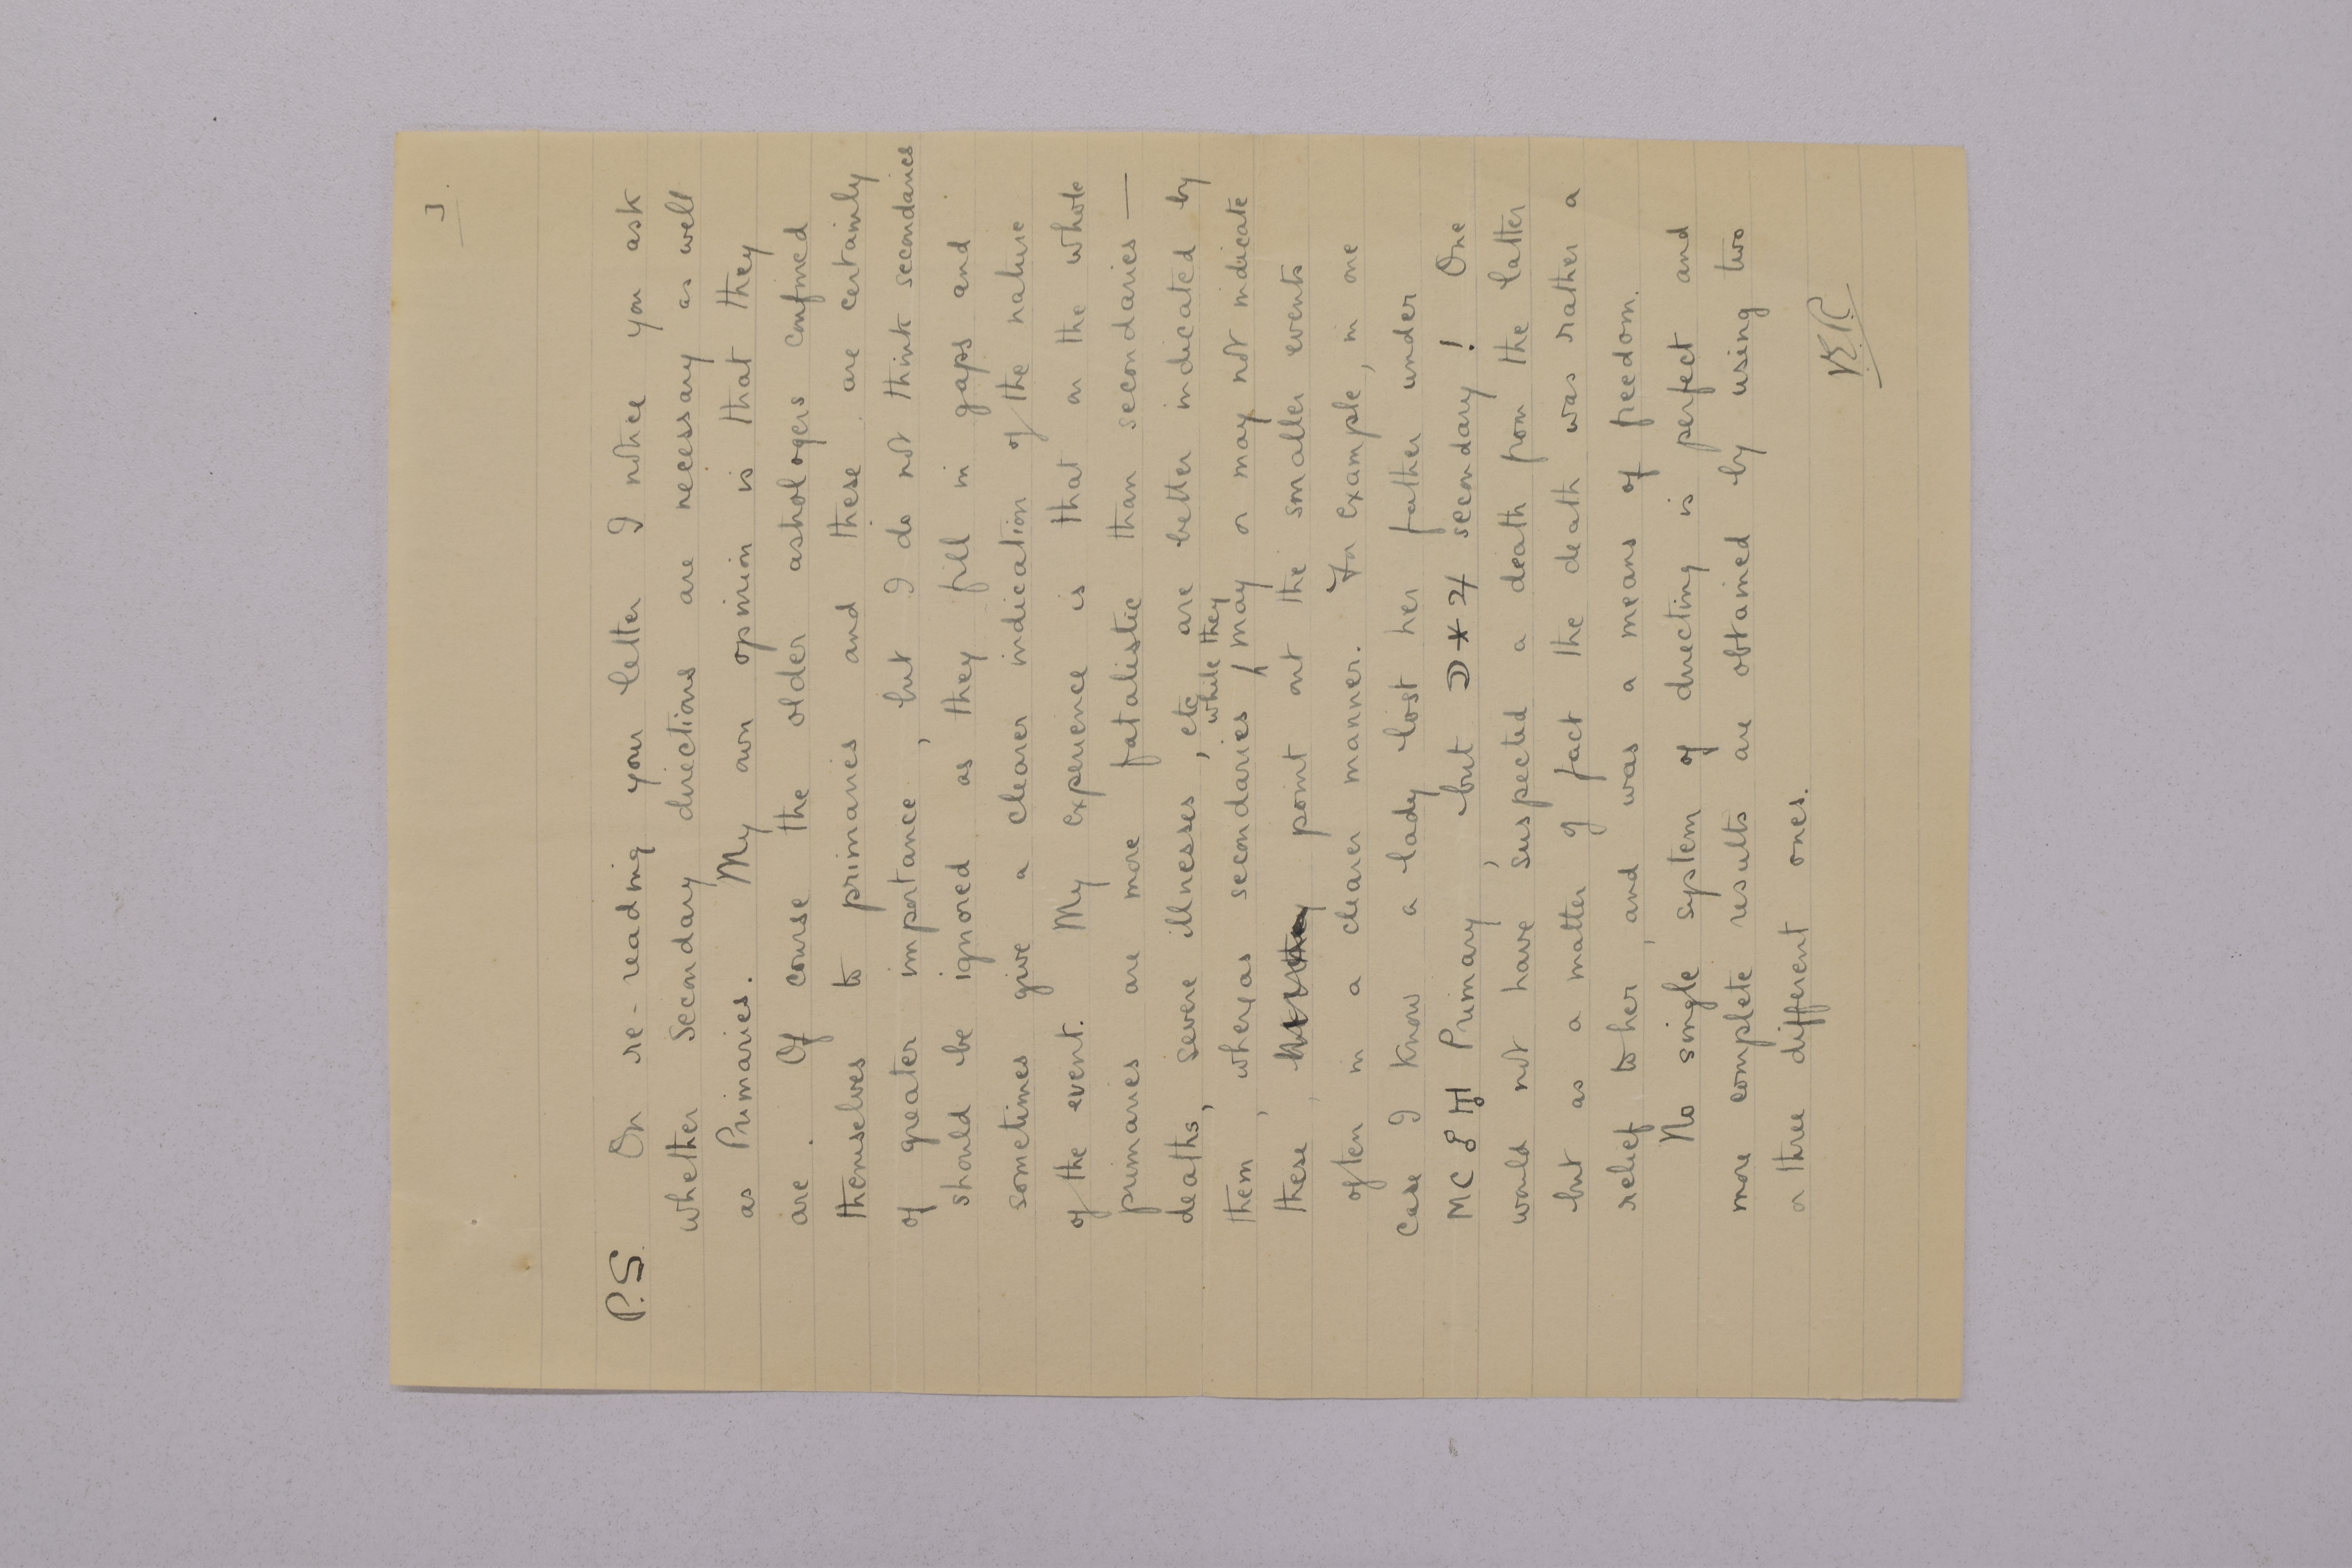 3.
P.S. On re-reading your letter I notice you ask
whether secondary directions are necessary as well
as Primaries. My own opinion is that they
are. Of course the older astrologers confined
themselves to primaries and these are certainly
of greater importance, but I do not think secondaries
should be ignored as they fill in gaps and
sometimes give a clearer indication of the nature
of the event. My experience is that on the whole
primaries are more fatalistic than secondaries —
deaths, severe illnesses, etc are better indicated by
them, whereas secondaries while they may or may not indicate
these, point out the smaller events
often in a clearer manner. For example, in one
case I know a lady lost her father under
MC ☍ ♅ Primary, but ☽ ⚹ ♃ secondary! One
would not have suspected a death from the latter
but as a matter of fact the death was rather a
relief to her, and was a means of freedom.
No single system of directing is perfect and
more complete results are obtained by using two
or three different ones.
VER